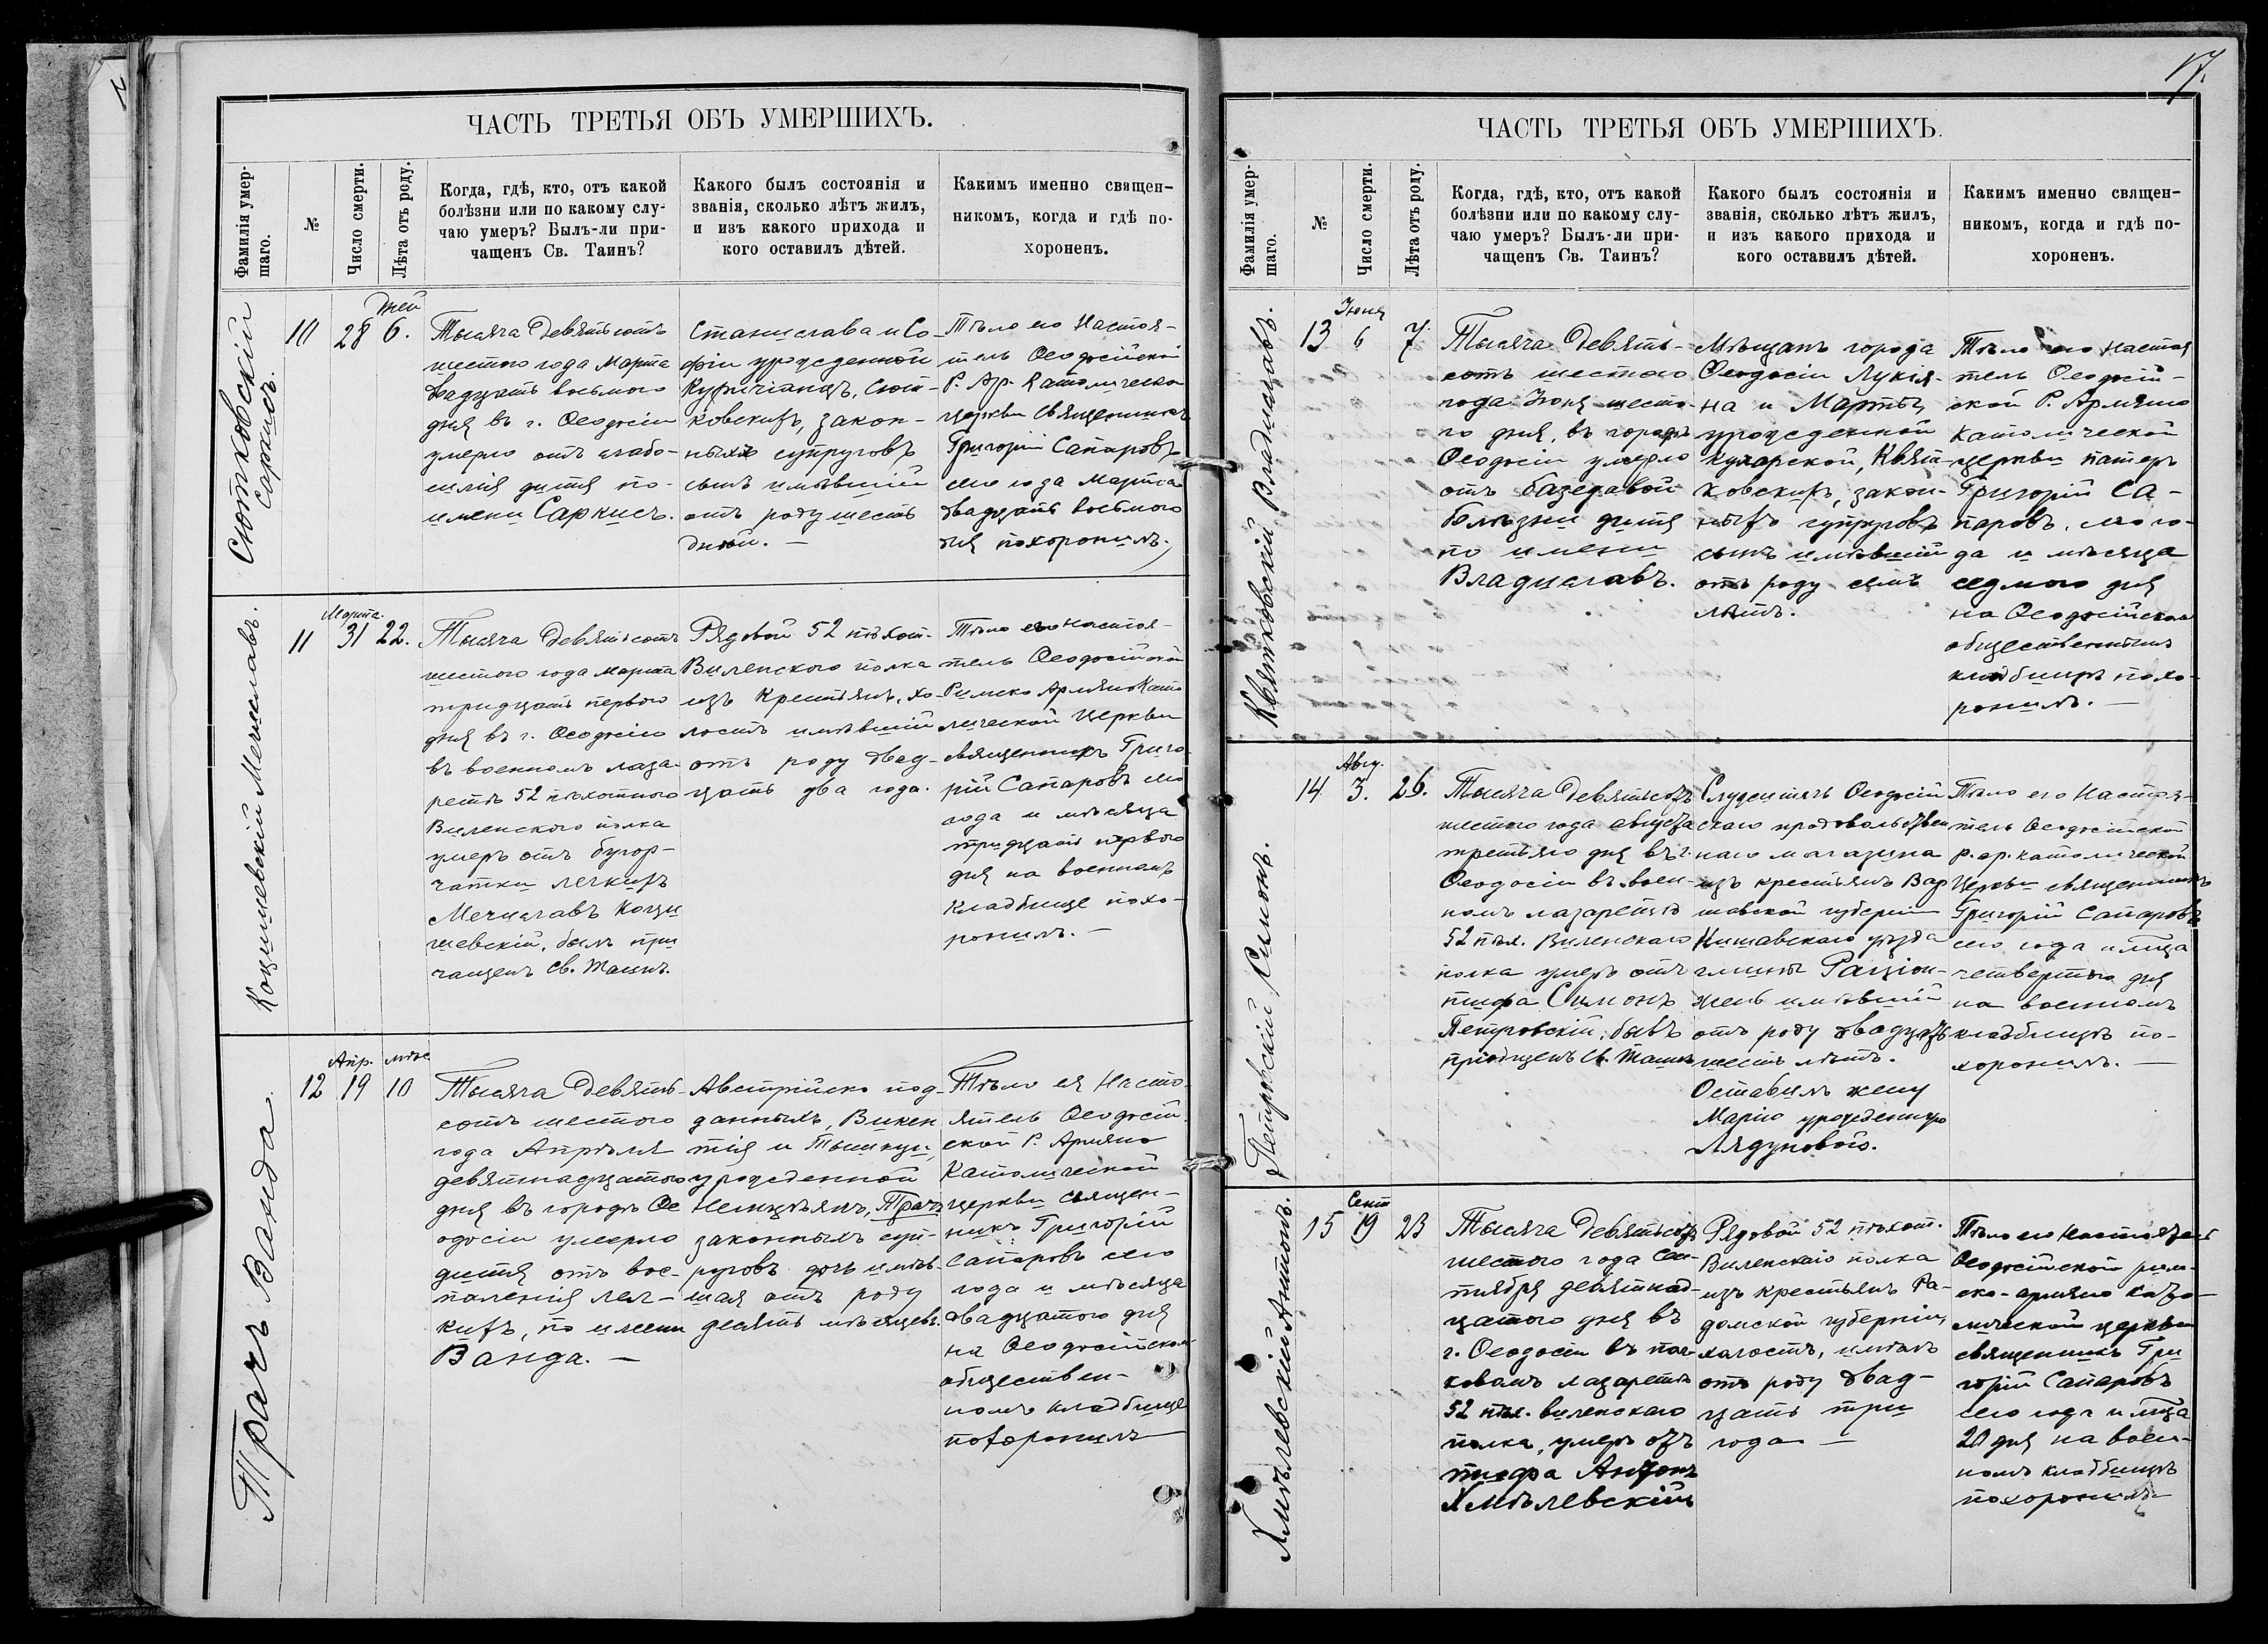 ЧАСТЬ ТРЕТЬЯ ОБЪ УМЕРШИХЪ.
Фамилія умер-
шаго.
№
Число смерти.
Лѣта отъ роду.
Когда, гдѣ, кто, отъ какой
болѣзни или по какому слу-
чаю умеръ? Былъ-ли при-
чащенъ Св. Таинъ?
Какого былъ состоянія и
званія, сколько лѣтъ жилъ,
и изъ какого прихода и
кого оставилъ дѣтей.
Какимъ именно священ-
никомъ, когда и гдѣ по-
хороненъ.
Сютковскій
Саркисъ.
10
28
Дней
6.
Тысяча девятьсотъ
шестого года Марта
двадцать восьмого
дня въ г. Ѳеодосіи
умерло отъ слабо-
силія дитя по
имени Саркисъ.
Станислава и Со-
фіи урожденной
сют-
ковскихъ, закон-
ныхъ супруговъ
сынъ имѣвшій
отъ роду шесть
дней. —
Тѣло его Настоя-
тель Ѳеодосійской
Р. Ар. Католической
церкви Священникъ
Григорій Сапаровъ
сего года Марта
двадцать восьмого
дня похоронилъ.
Коцишевскій Мечиславъ.
11
Марта
31
22.
Тысяча девятьсотъ
шестого года марта
тридцать первого
дня въ г. Ѳеодосіи
въ военномъ лаза-
ретѣ 52 пѣхотного
Виленского полка
умеръ отъ бугор-
чатки легкихъ
Мечиславъ Коци
шевскій, былъ при
чащенъ Св. Таинъ.
Рядовой 52 пѣхот.
Виленского полка
изъ Крестьянъ, хо-
лостъ имѣвшій
отъ роду двад-
цать два года.
Тѣло его настоя-
тель Ѳеодосійской
Римско Армяно Като
лической Церкви
священникъ Григо-
рій Сапаровъ сего
года и мѣсяца
тридцать первого
дня на военномъ
кладбище похо-
ронилъ. —
Трачъ Ванда.
12
Апр.
19
мѣс
10
Тысяча девять-
сотъ шестого
года Апрѣля
девятнадцатого
дня въ городѣ Ѳе
одосіи умерло
дитя отъ вос-
паленія лег-
кихъ, по имени
Ванда. —
Австрійско под-
данныхъ, Викен
тія и
урожденной
Трачъ
законныхъ суп-
руговъ дочь имѣв-
шая отъ роду
десять мѣсяцевъ.
Тѣло ея Насто-
ятель Ѳеодосій
ской Р. Армяно
Католической
церкви священ-
никъ Григорій
Сапаровъ сего
года и мѣсяца
двадцатого дня
на Ѳеодосійском
обществен-
номъ кладбище
похоронилъ
17.
ЧАСТЬ ТРЕТЬЯ ОБЪ УМЕРШИХЪ.
Фамилія умер-
шаго.
№
Число смерти.
Лѣта отъ роду.
Когда, гдѣ, кто, отъ какой
болѣзни или по какому слу-
чаю умеръ? Былъ-ли при-
чащенъ Св. Таинъ?
Какого былъ состоянія и
званія, сколько лѣтъ жилъ,
и изъ какого прихода и
кого оставилъ дѣтей.
Какимъ именно священ-
никомъ, когда и гдѣ по-
хороненъ.
Квятковскій Владиславъ.
13
Іюня
6
7
Тысяча девять-
сотъ шестого
года Іюня шесто-
го дня, въ городѣ
Ѳеодосіи умерло
отъ базедовой
болѣзни дитя
по имени
Владиславъ.
Мѣщанъ города
Ѳеодосіи Лукія-
на и Марты,
урожденной
Кухарской, Квят-
ковскихъ, закон-
ныхъ супруговъ
сынъ имѣвшій
отъ роду семь
лѣтъ.
Тѣло его настоя
тель Ѳеодосій-
ской Р. Армяно
Католической
церкви патеръ
Григорій Са-
паровъ, сего го-
да и мѣсяца
седмого дня
на Ѳеодосійском
общественномъ
кладбищѣ похо-
ронилъ. —
Петровскій Симонъ.
14
Авгу.
3.
26.
Тысяча девятьсотъ
шестого года августа
третьяго дня въ г.
Ѳеодосіи въ воен-
номъ лазаретѣ
52 пѣх. Виленскаго
полка умеръ отъ
тифа Симонъ
Петровскій; бывъ
пріобщенъ Св. Таинъ
Служитель Ѳеодосій
скаго продовольствен
наго магазина
изъ крестьянъ Вар
шавской губерніи
уѣзда
гмины
имѣвшій
отъ роду двадцать
шесть лѣтъ.
Оставилъ жену
Марію урожденную
Лядунового.
Тѣло его Настоя-
тель Ѳеодосійской
р. ар. католической
Церкви священникъ
Григорій Сапаровъ
сего года и м-ца
четвертого дня
на военномъ
кладбищѣ по-
хоронилъ. —
Хмѣлевскій Антонъ.
15
Сент
19
23
Тысяча девятьсотъ
шестого года Сен-
тября девятнад-
цатого дня въ
г. Ѳеодосіи въ пол-
ковомъ лазаретѣ
52 пѣх. виленскаго
полка, умеръ отъ
тифа Антонъ
Хмѣлевскій
Рядовой 52 пѣхот.
Виленскаго полка
изъ крестьянъ Ра-
домской губерніи,
холостъ, имѣлъ
отъ роду двад-
цать три
года —
Тѣло его Настоятель
Ѳеодосійской рим-
ско-армяно като-
лической церкви
священникъ Гри
горій Сапаровъ
сего года и м-ца
20 дня на воен-
номъ кладбищѣ
похоронилъ